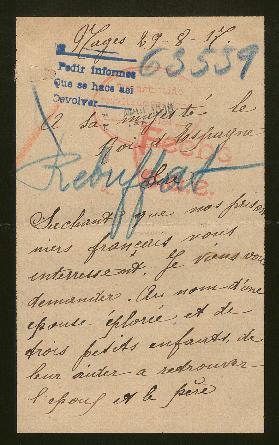 Nages 29-8-17
63559
Pedir informes
Que se haca asi
Devolver
A sa majesté le
Roi d'Espagne
Rebuffat
Sachant que nos prison
niers français vous
interressent. Je viens vous
demander. Au nom d'une
épouse éplorée et de
trois petits enfants de
leur aider a retrouver
l'epoux et le père